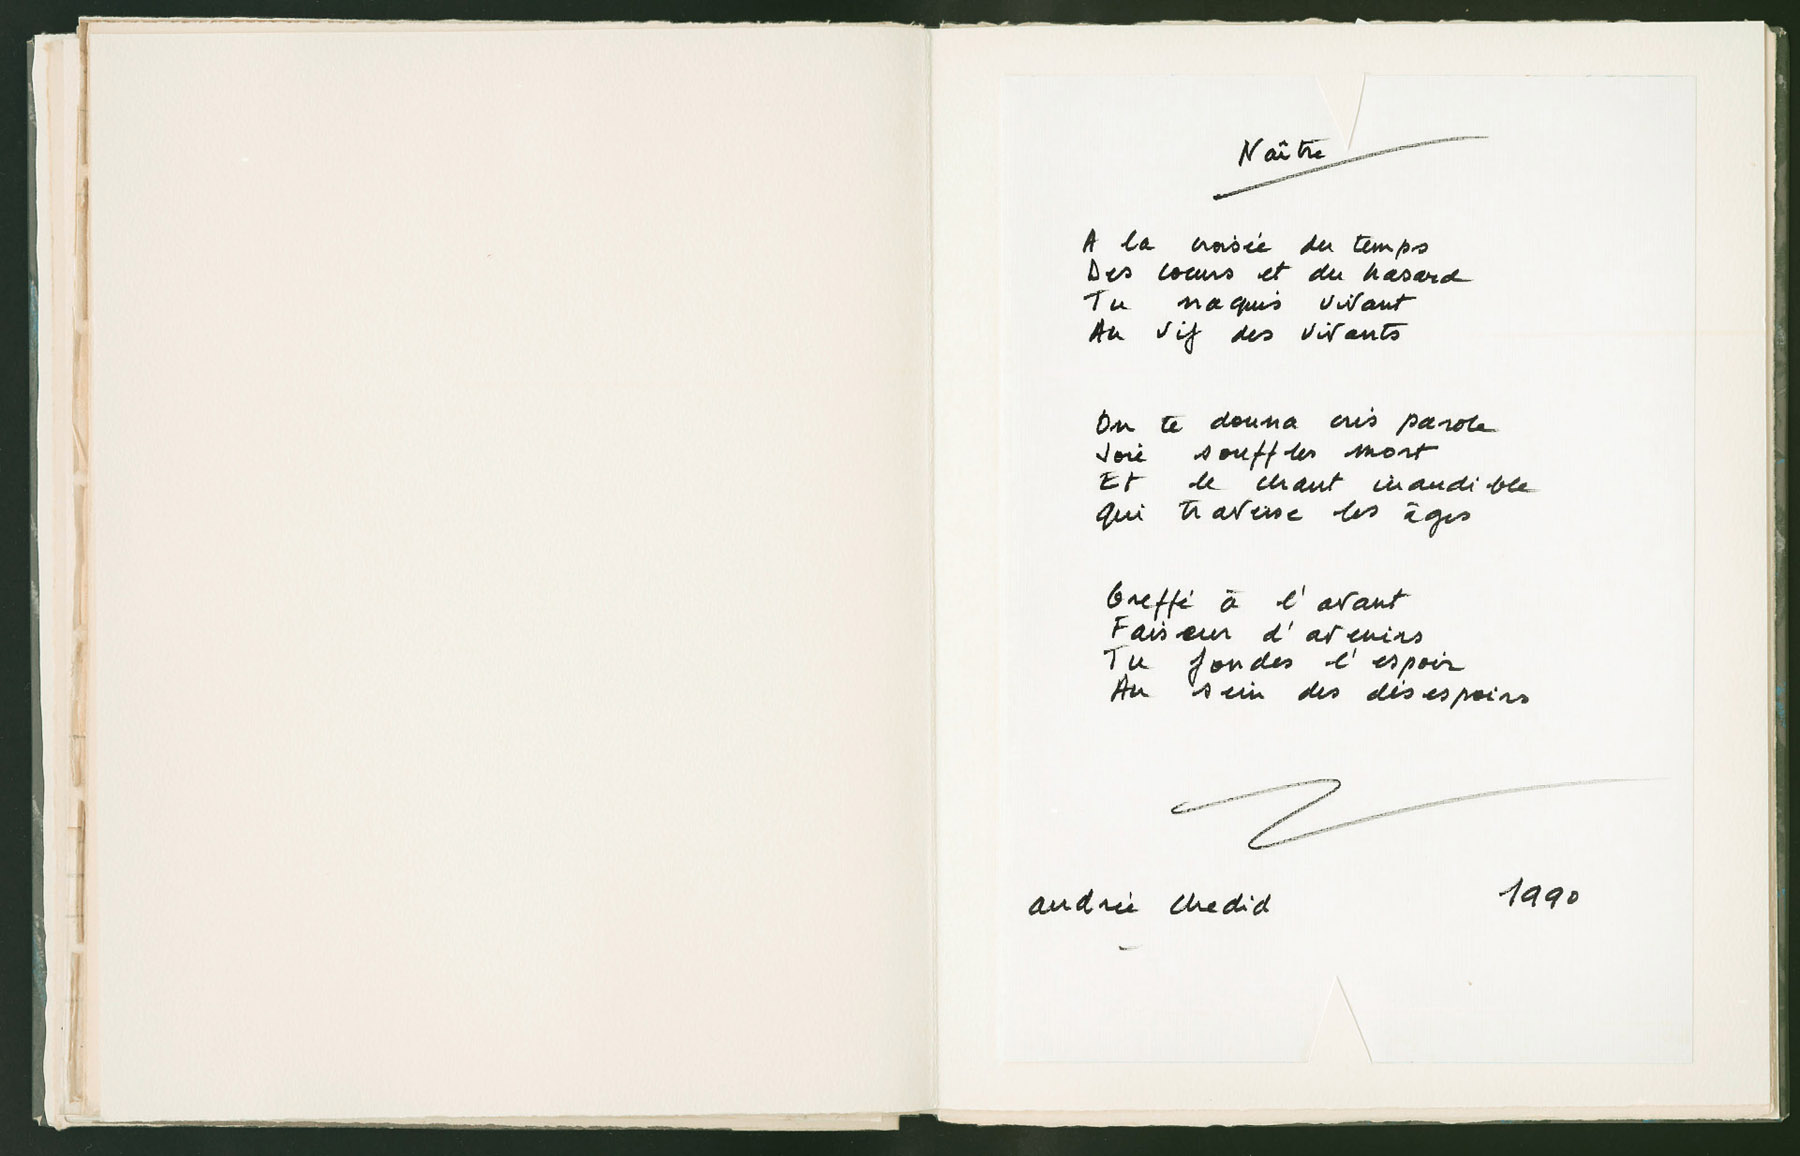 Naître
A la croisée du temps
Des coeurs et du hasard
Tu naquis vivant
Au vif des vivants
On te donna cris parole
Joie souffles mort
Et le chant inaudible
qui traverse les âges
Greffé à l'avant
Faiseur d'avenirs
Tu fondes l'espoir
Au sein des désespoirs
andrée chedid 1990